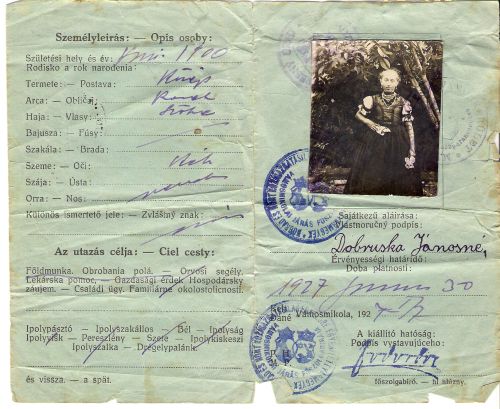 Személyleirás: — Opis osoby:
Születési hely és év: 1900
Rodisko a rok narodenia:
Termete: - Postava:
Arca: - Obličaj:
Haja: - Vlasy: Szőke
Bajusza: - Fúsy:
Szakála: - Brada:
Szeme: - Oči: Kék
Szája: - Ústa:
Orra: - Nos:
Különös ismertető jele: - Zvlášny znak:
Az utazás célja: - Ciel cesty:
Földmunka. Obrobania polá. - Orvosi segély.
Lekárska pomoc. - Gazdasági érdek Hospodarsky
záujem. - Családi ügy. Familiárne okolostolicnosti.
Ipolypásztó - Ipolyszakállos - Bél - Ipolyság
Ipolyvisk - Pereszlény - Szete - Ipolykiskeszi
Ipolyszalka - Drégelypalánk.
és vissza. — a spät.
Sajátkezű aláirása:
Vlastnoručny podpis:
Dobruska Jánosné,
Érvényességi határidő:
Doba platnosti:
1927 junius 30
Kelt
Dané Vámosmikola, 192
A kiállitó hatóság:
Podpis vystavujúceho:
P. H.
főszolgabiró. — hl. slúžny.